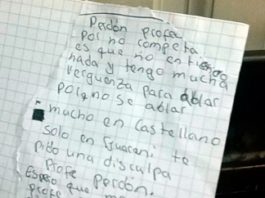 Perdón profe
Por no competa
es que no entiendo
nada y tengo mucha
verguenza para ablar
porq no se ablar
mucho en Castellano
solo en Guarani te
pido una disculpa
Profe perdón.
Espero que me
profe